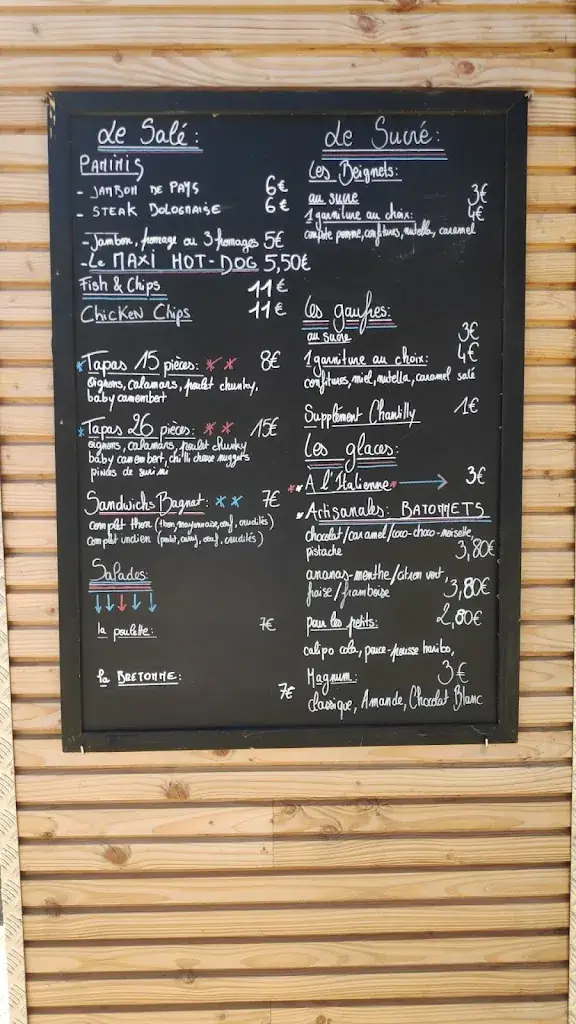 Le Salé:
PANINIS
- JAMBON DE PAYS 6€
- STEAK BOLOGNAISE 6€
- Jambon, fromage ou 3 fromages 5€
- Le MAXI HOT-DOG 5,50€
Fish & Chips 11€
Chicken Chips 11€
Tapas 15 pièces: 8€
oignons, calamars, poulet chunky,
baby camembert
Tapas 26 pièces: 15€
oignons, calamars, poulet chunky
baby camembert, chilli cheese nuggets
pinces de surimi
Sandwichs Bagnat: 7€
complet thon (thon, mayonnaise, oeuf, crudités)
complet indien (poulet, curry, oeuf, crudités)
Salades:
la poulette: 7€
la BRETONNE: 7€
Le Sucré:
Les Beignets:
au sucre 3€
1 garniture au choix: 4€
compote pomme, confitures, nutella, caramel
Les gaufres:
au sucre 3€
1 garniture au choix: 4€
confitures, miel, nutella, caramel salé
Supplément Chantilly 1€
Les glaces:
A l'Italienne 3€
Artisanales: BATONNETS
chocolat/caramel/coco-choco-noisette,
pistache 3,80€
ananas-menthe/citron vert
fraise/framboise 3,80€
pour les petits: 2,80€
calipo cola, pouce-pousse haribo,
Magnum: 3€
classique, Amande, Chocolat Blanc